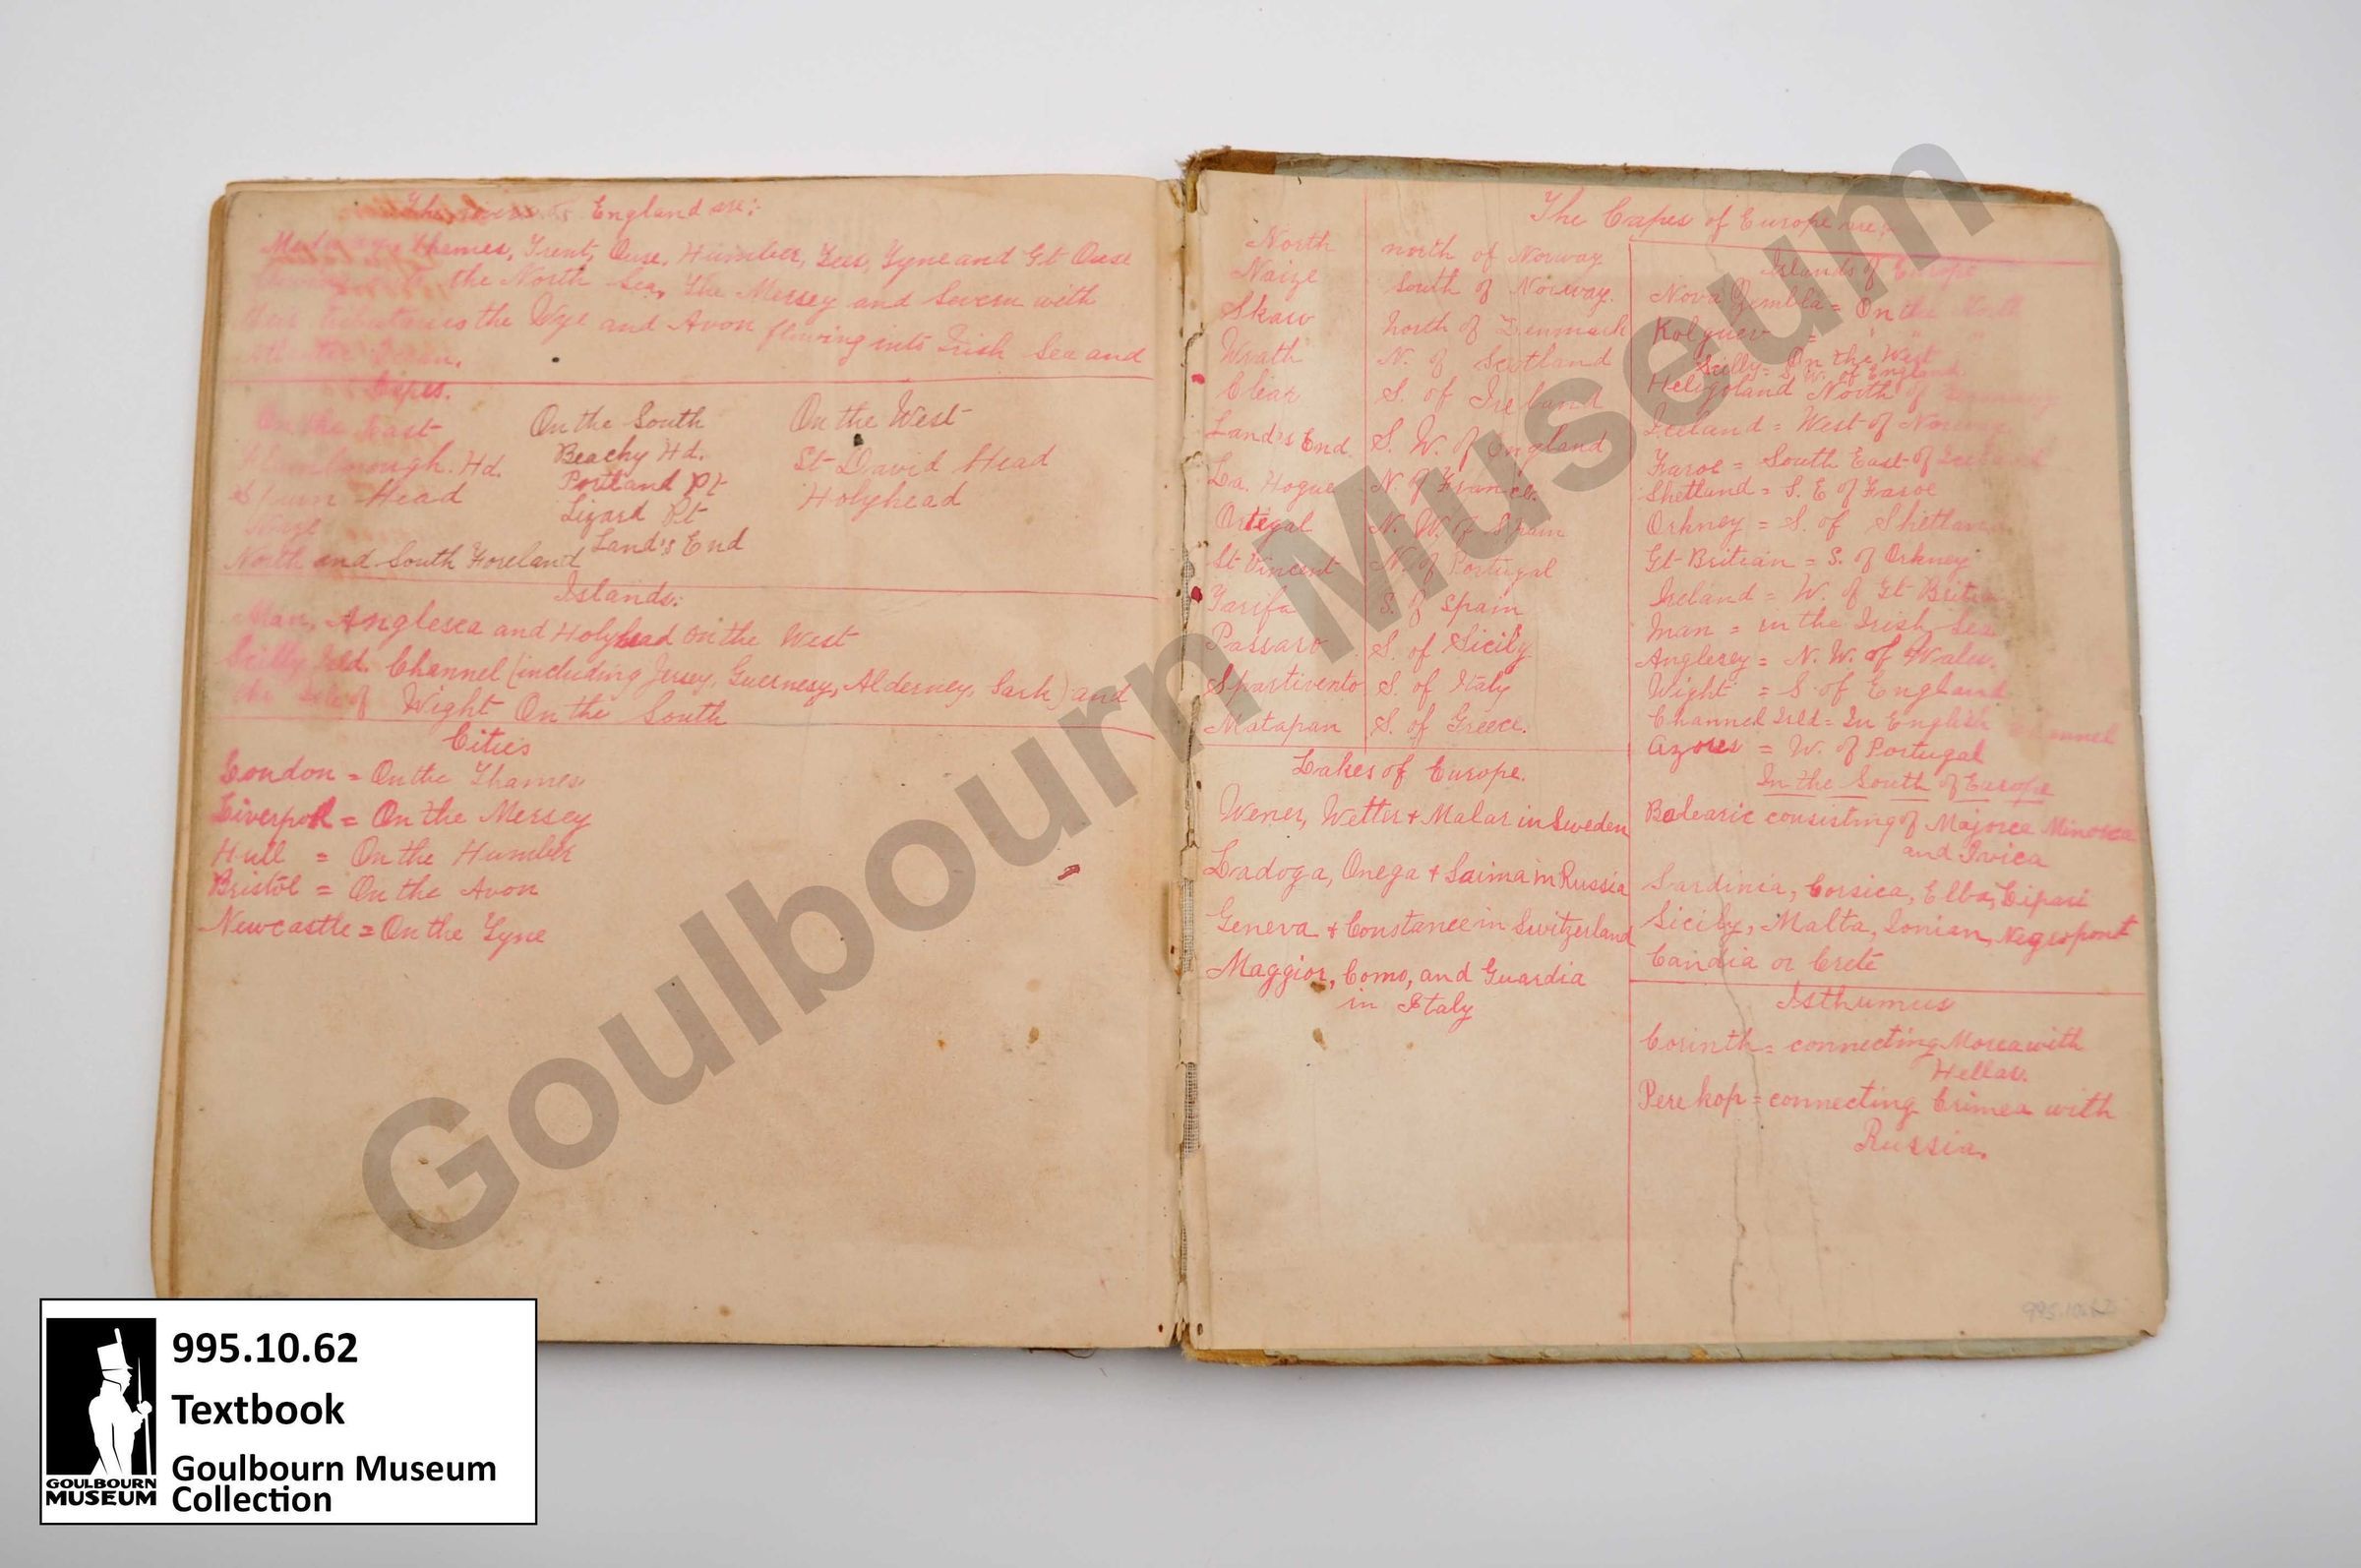 The rivers of England are:-
Medway, Thames, Trent, Ouse, Humber, Tees, Tyne and Gt Ouse
the North Sea, The Mersey and Severn with
their tributaries the Wye and Avon flowing into Irish Sea and
Capes.
On the East
Flamborough. Hd.
Spurn Head
Naze
North and South Foreland
On the South
Beachy Hd.
Portland Pt
Lizard Pt
Land's End
On the West
St David Head
Holyhead
Islands:
Man, Anglesea and Holyhead on the West
Scilly Isld. Channel (including Jersey, Guernesy, Alderney, Sark) and
the Isle of Wight On the South
Cities
London = On the Thames
Liverpol = On the Mersey
Hull = On the Humber
Bristol = On the Avon
Newcastle = On the Tyne
The Capes of Europe are:-
North north of Norway
Naize South of Norway.
Skaw north of Denmark
Wrath N. of Scotland
Clear S. of Ireland
Land's End. S. W. of England
La. Hogue N. of France.
Ortegal N. W. of Spain
St Vincent N. of Portugal
Tarifa S. of Spain
Passaro S. of Sicily
Spartivento S. of Italy
Matapan S. of Greece.
Lakes of Europe.
Wener, Wetter + Malar in Sweden
Ladoga, Onega + Saima in Russia
Geneva + Constance in Switzerland
Maggior, Como, and Guardia
in Italy
Islands of Europe
Nova Zembla = On the North
Kolguev = " "
Scilly = On the West
S. W. of England
Heligoland North of Germany
Iceland = West of Norway
Faroe = South East of Iceland
Shetland = S. E of Faroe
Orkney = S. of Shetland
Gt Britian = S. of Orkney
Ireland = W. of Gt Britian
Man = in the Irish Sea
Anglesey = N. W. of Wales.
Wight = S. of England
Channel Isld = In English Channel
Azores = W. of Portugal
In the South of Europe
Balearic consisting of Majorca Minorca
and Ivica
Sardinia, Corsica, Elba, Lipari
Sicily, Malta, Ionian, Negropont
Candia or Crete
Isthumus
Corinth = connecting Morea with
Hellas.
Perekop = connecting Crimea with
Russia.
995.10.62
Goulbourn Museum
GOULBOURN
MUSEUM
995.10.62
Textbook
Goulbourn Museum
Collection